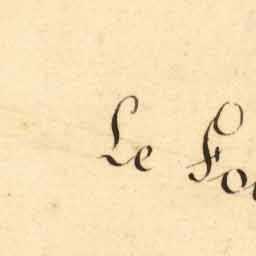 Le Fo